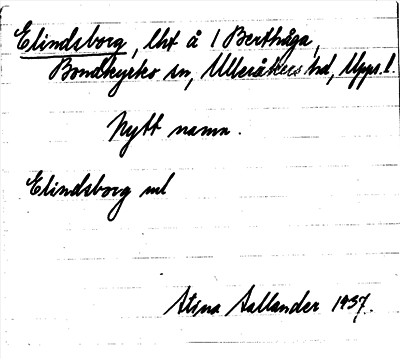 Elindsborg, lht å 1 Berthåga,
Bondkyrko sn, Ulleråkers hd, Upps. l.
Nytt namn.
Elindsborg ml
Stina Aallander 1937.